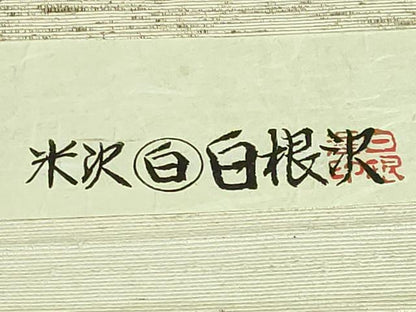 米沢 白 白根沢